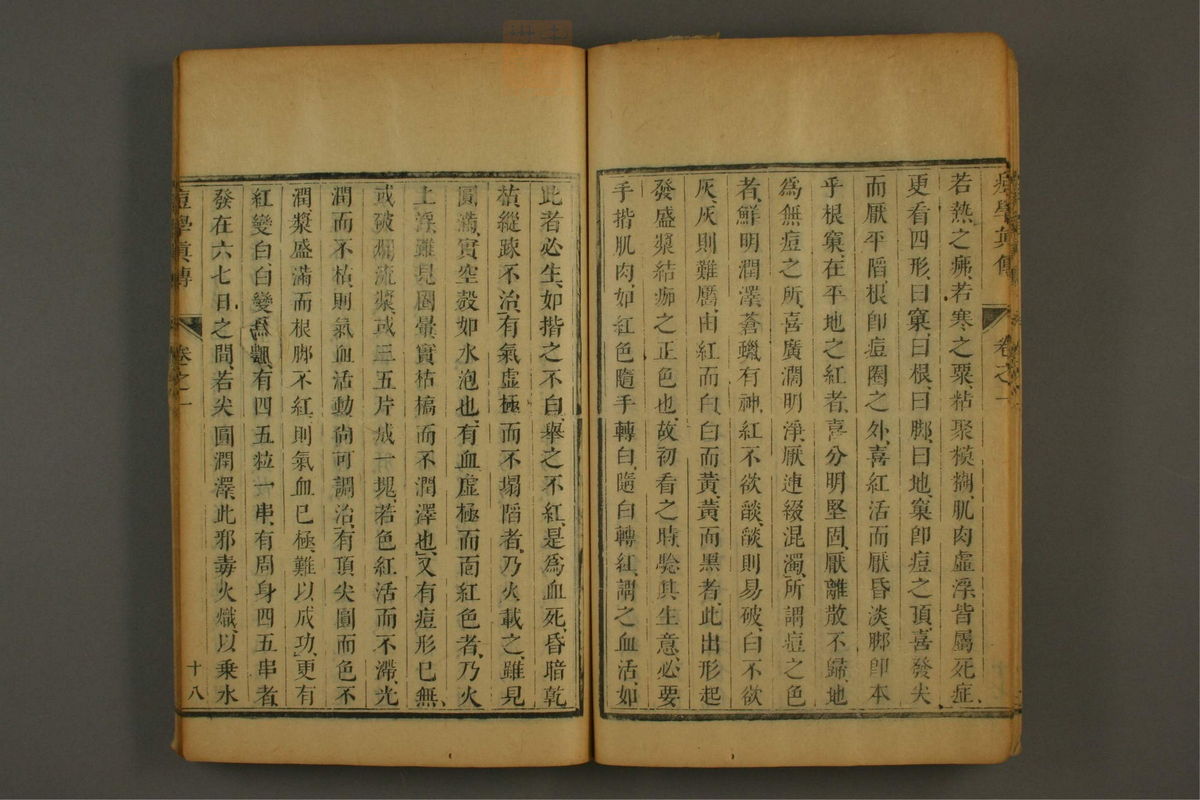 痘學眞傳 卷之一
若熱之疿、若寒之粟、粘聚模糊、肌肉虛浮、皆屬死症、
更看四形、曰窠、曰根、曰脚、曰地、窠卽痘之頂、喜發尖
而厭平䧟、根卽痘圈之外、喜紅活而厭昏淡、脚卽本
乎根窠、在平地之紅者、喜分明堅固、厭離散不歸、地
爲無痘之所、喜廣濶明淨、厭連綴混濁、所謂痘之色
者、鮮明潤澤、蒼蠟有神、紅不欲𦦨、𦦨則易破、白不欲
灰、灰則難靨、由紅而白、白而黃、黃而黑者、此出形起
發盛漿結痂之正色也、故初看之時、騐其生意、必要
手揩肌肉、如紅色隨手轉白、隨白轉紅、謂之血活、如
此者必生、如揩之不白、舉之不紅、是爲血死、昏暗乾
枯、縱疎不治、有氣虛極而不塌䧟者、乃火載之、雖見
圓滿、實空殼如水泡也、有血虛極而面紅色者、乃火
上浮、雖見圈暈、實枯槁而不潤澤也、又有痘形已無、
或破爛流漿、或三五片成一塊、若色紅活而不滯、光
潤而不枯、則氣血活動、尙可調治、有頂尖圓而色不
潤、漿盛滿而根脚不紅、則氣血已極、難以成功、更有
紅變白、白變爲飄、有四五粒一串、有周身四五串者、
發在六七日之間、若尖圓潤澤、此邪毒火熾、以乘水
痘學眞傳 卷之一 十八